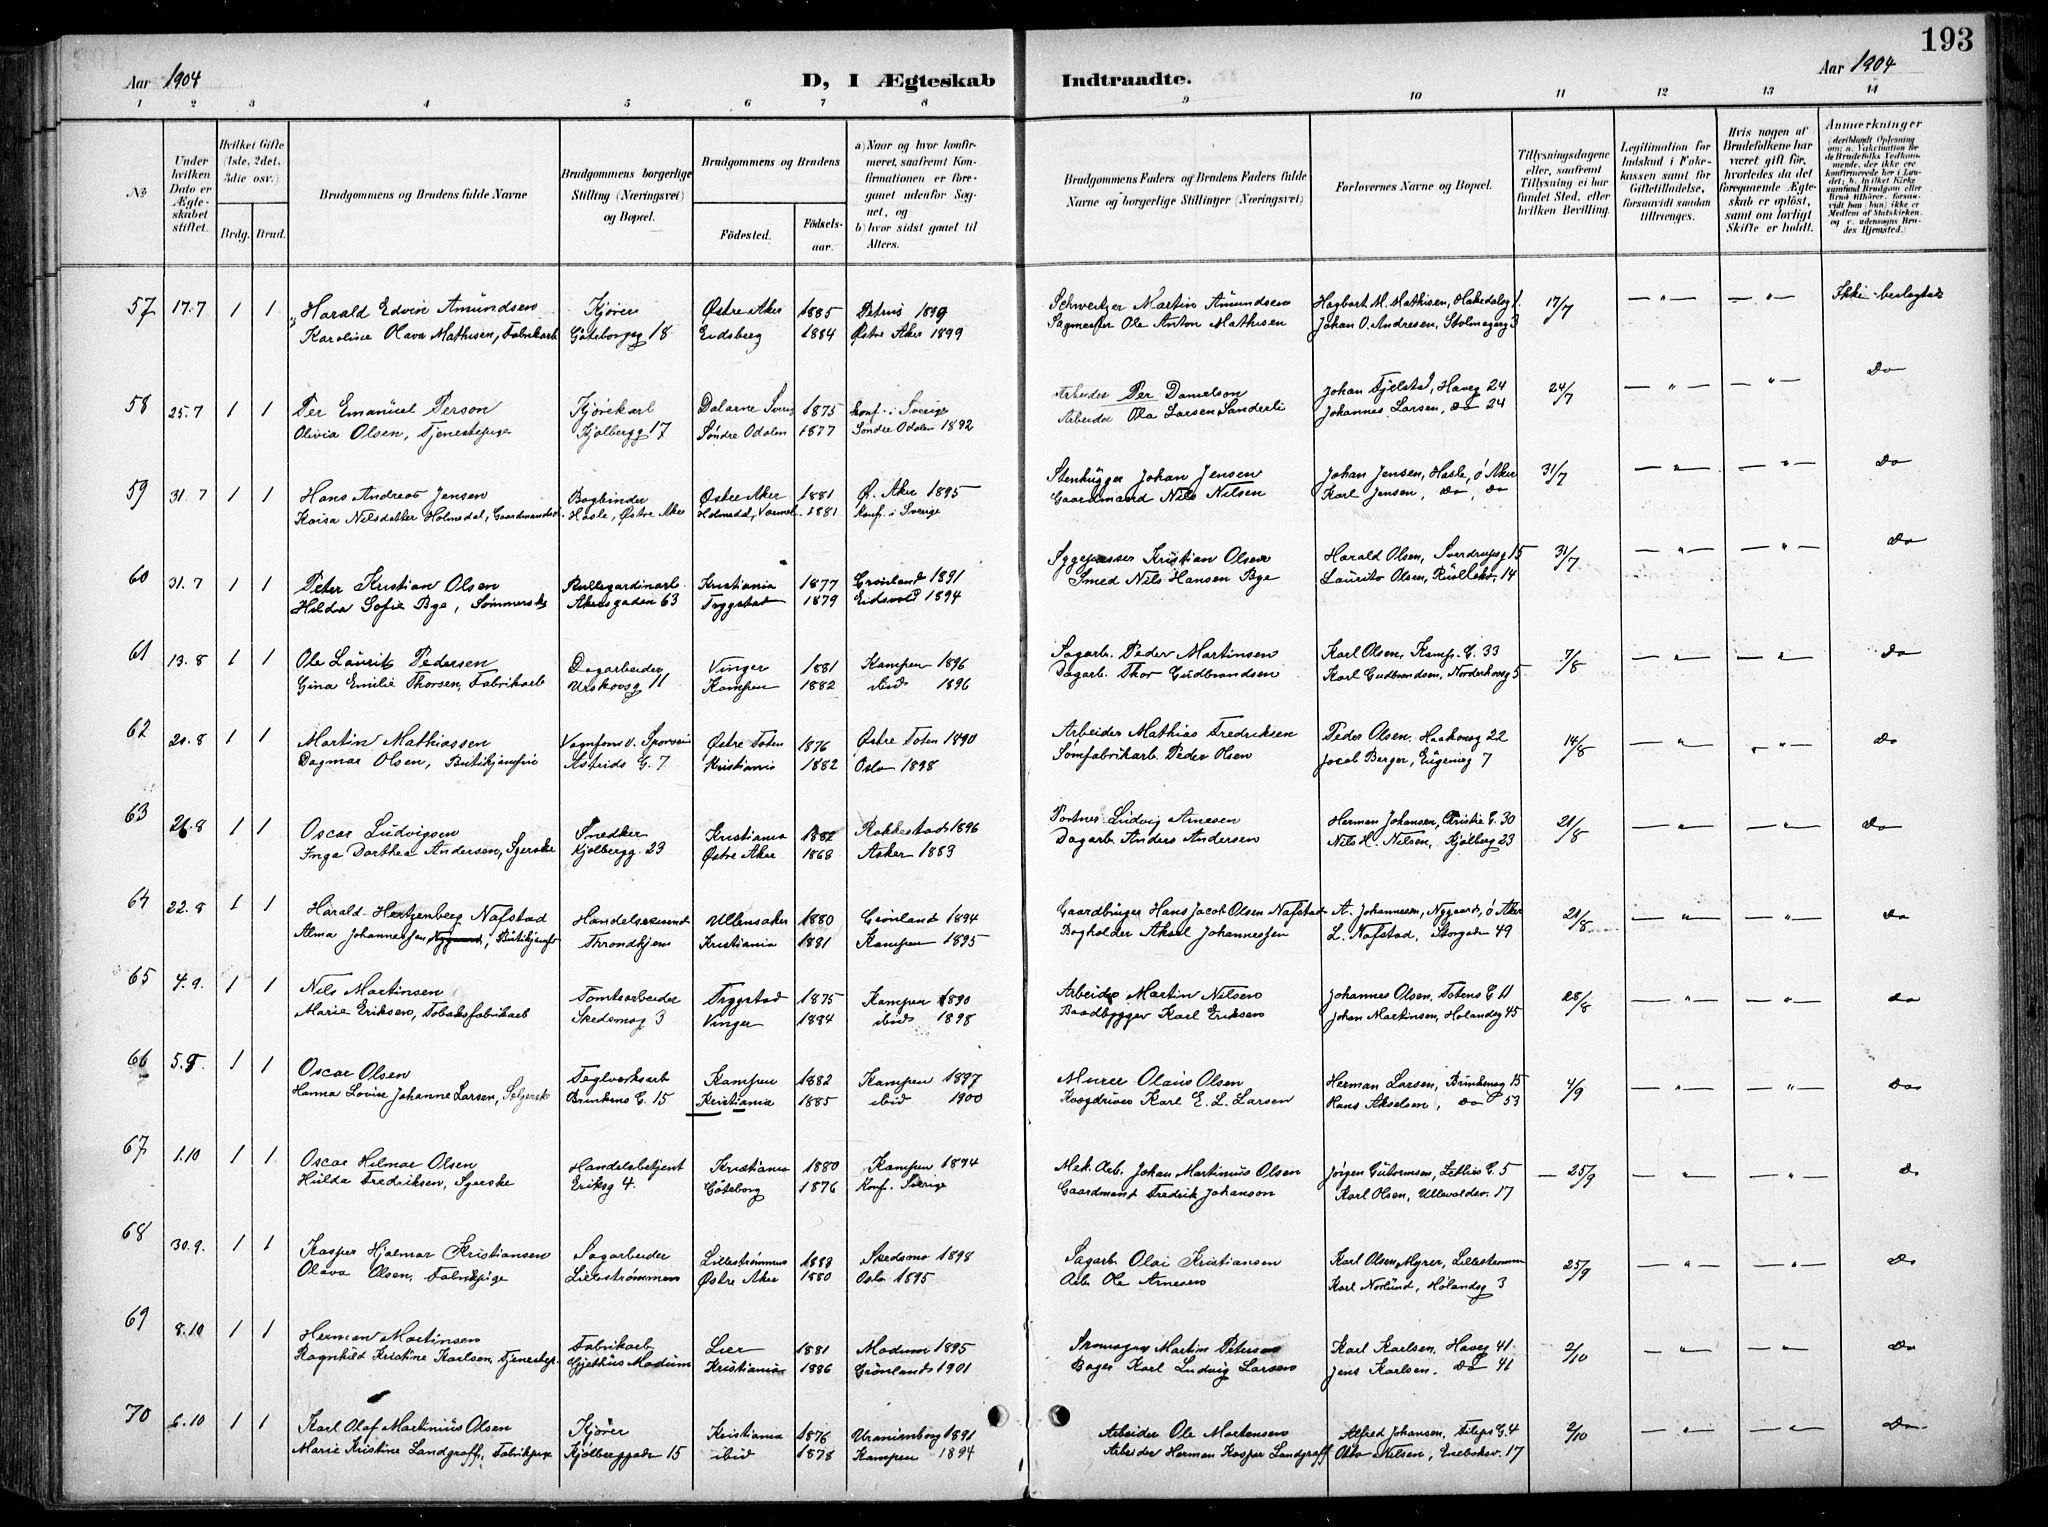 193
Aar 1904 D, I Ægteskab Indtraadte. Aar 1904
1 2 3 4 5 6 7 8 9 10 11 12 13 14
No
Under hvilken Dato er Ægteskabet stiftet.
Hvilket Gifte (1ste, 2det, 3die osv.)
Brdg. Brud.
Brudgommens og Brudens fulde Navne
Brudgommens borgerlige Stilling (Næringsvei) og Bopæl.
Brudgommens og Brudens
Fødested. Fødselsaar.
a) Naar og hvor konfirmeret, saafremt Konfirmationen er foregaaet udenfor Sognet, og
b) hvor sidst gaaet til Alters.
Brudgommens Faders og Brudens Faders fulde Navne og borgerlige Stillinger (Næringsvei)
Forlovernes Navne og Bopæl.
Tillysningsdagene eller, saafremt Tillysning ei har fundet Sted, efter hvilken Bevilling.
Legitimation for Indskud i Enkekassen samt for Giftetilladelse, forsaavidt saadan tiltrænges.
Hvis nogen af Brudefolkene har været gift før, hvorledes da det foregaaende Ægteskab er opløst, samt om lovligt Skifte er holdt.
Anmærkninger (deriblandt Oplysning om: a. Vakcination for de Brudefolks Vedkommende, der ikke ere konfirmerede her i Landet; b. hvilket Kirkesamfund Brudgom eller Brud tilhører, forsaavidt han (hun) ikke er Medlem af Statskirken, og c. udensogns Brudes Hjemsted.)
57 17.7 1 1 Harald Edvin Amundsen Kjører Østre Aker 1885 Petrus 1899 Schweitzer Martin Amundsen Hagbart M. Mathisen, Hakedalsg 1. 17/7 — " — — " — Ikke beslægtede
Karoline Olava Mathisen, Fabrikarb Göteborgg 18 Eidsberg 1884 Østre Aker 1899 Sagmester Ole Anton Mathisen Johan O. Andresen, Stolmagerg 3
58 25.7 1 1 Per Emanuel Person Kjørekarl Dalarne Sverig 1875 Konf. i Sverige Arbeider Per Danielson Johan Fjelstad, Haveg 24 24/7 — " — — " — Do
Olivia Olsen, Tjenestepige Kjølbergg 17 Søndre Odalen 1877 Søndre Odalen 1892 Arbeider Ola Larsen Sanderli Johannes Larsen, do 24
59 31.7 1 1 Hans Andreas Jensen Bogbinder Østre Aker 1881 Ø. Aker 1895 Stenhugger Johan Jensen Johan Jensen, Hasle, Ø Aker 31/7 — " — — " — Do
Kaisa Nilsdatter Holmedal, Gaardmandsd. Hasle, Østre Aker Holmedal, Værmel. 1881 Konf. i Sverige Gaardmand Nils Nilsen Karl Jensen, do, do
60 31.7 1 1 Peter Kristian Olsen Rullegardinarb. Kristiania 1877 Grønland 1891 Sygepasser Kristian Olsen Harald Olsen, Sverdrupsg 15 31/7 — " — — " — Do
Hilda Sofie Bye, Sømmerske Akersgaden 63 Trygstad 1879 Eidsvold 1894 Smed Nils Hansen Bye Laurits Olsen, 14
61 13.8 1 1 Ole Laurits Pedersen Dagarbeider Vinger 1881 Kampen 1896 Sagarb. Peder Martinsen Karl Olsen, Kamp. G. 33 7/8 — " — — " — Do
Gina Emilie Thorsen, Fabrikarb Urskovsg 11 Kampen 1882 ibid 1896 Dagarb. Thor Gudbrandsen Karl Gudbrandsen, Norderhovsg 5
62 20.8 1 1 Martin Mathiassen Vognfører v. Sporvei Østre Toten 1876 Østre Toten 1890 Arbeider Mathias Fredriksen Peder Olsen. Haakonsg 22 14/8 — " — — " — Do
Dagmar Olsen, Butikjomfru Astrids G. 7 Kristiania 1882 Oslo 1898 Sømfabrikarb. Peder Olsen Jacob Berger, Eugenieg 7
63 21.8 1 1 Oscar Ludvigsen Snedker Kristiania 1882 Rakkestad 1896 Portner Ludvig Arnesen Herman Johansen, Christie G. 30 21/8 — " — — " — Do
Inga Dorthea Andersen, Syerske Kjølbergg. 23 Østre Aker 1868 Asker 1883 Dagarb. Anders Andersen Nils H. Nilsen, Kjølberg 23
64 22.8 1 1 Harald Hertzenberg Nafstad Handelsagent Ullensaker 1880 Grønland 1894 Gaardbruger Hans Jacob Olsen Nafstad A. Johannesen, Nygaard, Ø Aker 21/8 — " — — " — Do
Alma Johannessen Nygaard, Butikjomfr Throndhjem Kristiania 1881 Kampen 1895 Bogholder Aksel Johannessen L. Nafstad, Storgaden 49
65 4.9. 1 1 Nils Martinsen Tomtearbeider Trygstad 1875 Kampen 1890 Arbeider Martin Nilsen Johannes Olsen, Totens G 11 28/8 — " — — " — Do
Marie Eriksen, Tobaksfabrikarb Skedsmog 3 Vinger 1884 ibid 1898 Baadbygger Karl Eriksen Johan Martinsen, Hølandsg 45
66 5.9. 1 1 Oscar Olsen Teglverksarb Kampen 1882 Kampen 1897 Murer Olaus Olsen Herman Larsen, Brinkensg 15 4/9 — " — — " — Do
Hanna Lovise Johanne Larsen, Selgerske Brinkens G. 15 Kristiania 1885 ibid 1900 Karl E. L. Larsen Hans Akselsen, do 53
67 1.10 1 1 Oscar Hilmar Olsen Handelsbetjent Kristiania 1880 Kampen 1894 Mek. Arb. Johan Martinius Olsen Jørgen Gutormsen, Lethes G. 5 — 25/9 — " — — " — Do
Hulda Fredriksen, Syerske Eriksg 4. Göteborg 1876 Konf. Sverige Gaardmand Fredrik Johanson Karl Olsen, Ullevoldsv. 17
68 30.9. 1 1 Kasper Hjalmar Kristiansen Sagarbeider Lillestrømmen 1883 Skedsmo 1898 Sagarb. Olai Kristiansen Karl Olsen Myrer, Lillestrømmen 25/9 — " — — " — Do
Olava Olsen, Fabrikpige Lillestrømmen Østre Aker 1880 Oslo 1895 Arb. Ole Arnesen Karl Norlund, Hølandsg 3
69 8.10 1 1 Herman Martinsen Fabrikarb Lier 1881 Modum 1895 Skomager Martin Peterson Karl Karlsen, Haveg 41. 2/10 — " — — " — Do
Ragnhild Kristine Karlsen, Tjenestep. Gjethus Modum Kristiania 1886 Grønland 1901 Bager Karl Ludvig Larsen Jens Karlsen. do 41
70 6.10 1 1 Karl Olaf Martinius Olsen Kjører Kristiania 1876 Uranienborg 1891 Arbeider Ole Mortensen Alfred Johansen, Filips G. 4 2/10 — " — — " — Do
Marie Kristine Landgraff, Fabrikpige Kjølberggade 15 ibid 1878 Kampen 1894 Arbeider Herman Kasper Landgraff Otto Nilsen, Enebakv. 17